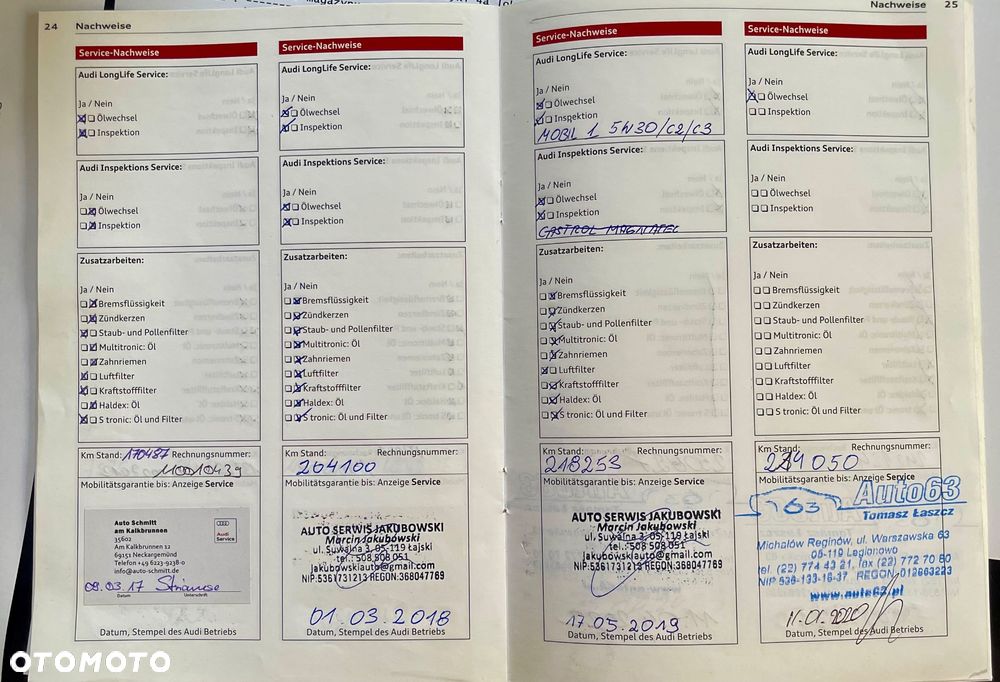 24 Nachweise
Service-Nachweise
Audi LongLife Service:
Ja / Nein
Ölwechsel
Inspektion
Audi Inspektions Service:
Ja / Nein
Ölwechsel
Inspektion
Zusatzarbeiten:
Ja / Nein
Bremsflüssigkeit
Zündkerzen
Staub- und Pollenfilter
Multitronic: Öl
Zahnriemen
Luftfilter
Kraftstofffilter
Haldex: Öl
S tronic: Öl und Filter
Km Stand: 170487 Rechnungsnummer:
Mobilitätsgarantie bis: Anzeige Service
Auto Schmitt
am Kalkbrunnen
35602
Am Kalkbrunnen 12
69151 Neckargemünd
Telefon +49 6223-9238-0
info@auto-schmitt.de
Audi
Service
08.03.17
Datum Unterschrift
Datum, Stempel des Audi Betriebs
Service-Nachweise
Audi LongLife Service:
Ja / Nein
Ölwechsel
Inspektion
Audi Inspektions Service:
Ja / Nein
Ölwechsel
Inspektion
Zusatzarbeiten:
Ja / Nein
Bremsflüssigkeit
Zündkerzen
Staub- und Pollenfilter
Multitronic: Öl
Zahnriemen
Luftfilter
Kraftstofffilter
Haldex: Öl
S tronic: Öl und Filter
Km Stand: Rechnungsnummer:
204100
Mobilitätsgarantie bis: Anzeige Service
AUTO SERWIS JAKUBOWSKI
Marcin Jakubowski
ul. Suwalna 3, 05-119 Łajski
tel.: 508 508 051
jakubowskiauto@gmail.com
NIP:5361731213 REGON:368047769
01.03.2018
Datum, Stempel des Audi Betriebs
Nachweise 25
Service-Nachweise
Audi LongLife Service:
Ja / Nein
Ölwechsel
Inspektion
MOBIL 1 5W30/C2/C3
Audi Inspektions Service:
Ja / Nein
Ölwechsel
Inspektion
CASTROL MAGNATEC
Zusatzarbeiten:
Ja / Nein
Bremsflüssigkeit
Zündkerzen
Staub- und Pollenfilter
Multitronic: Öl
Zahnriemen
Luftfilter
Kraftstofffilter
Haldex: Öl
S tronic: Öl und Filter
Km Stand: Rechnungsnummer:
218253
Mobilitätsgarantie bis: Anzeige Service
AUTO SERWIS JAKUBOWSKI
Marcin Jakubowski
ul. Suwalna 3, 05-119 Łajski
tel.: 508 508 051
jakubowskiauto@gmail.com
NIP:5361731213 REGON:368047769
17.05.2019
Datum, Stempel des Audi Betriebs
Service-Nachweise
Audi LongLife Service:
Ja / Nein
Ölwechsel
Inspektion
Audi Inspektions Service:
Ja / Nein
Ölwechsel
Inspektion
Zusatzarbeiten:
Ja / Nein
Bremsflüssigkeit
Zündkerzen
Staub- und Pollenfilter
Multitronic: Öl
Zahnriemen
Luftfilter
Kraftstofffilter
Haldex: Öl
S tronic: Öl und Filter
Km Stand: Rechnungsnummer:
Mobilitätsgarantie bis: Anzeige Service
63 Auto63
Tomasz Łaszcz
Michałów Reginów, ul. Warszawska 63
05-119 Legionowo
tel. (22) 774 43 21, fax (22) 772 70 80
NIP 536-133-16-37 REGON 012663223
www.auto63.pl
11.01.2020
Datum, Stempel des Audi Betriebs
OTOMOTO